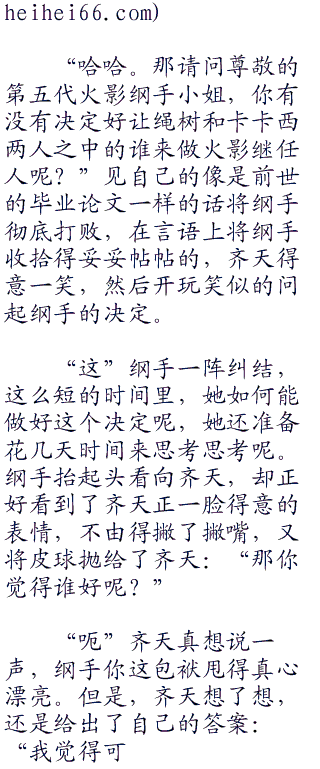 heihei66.com)
“哈哈。那请问尊敬的
第五代火影纲手小姐，你有
没有决定好让绳树和卡卡西
两人之中的谁来做火影继任
人呢？”见自己的像是前世
的毕业论文一样的话将纲手
彻底打败，在言语上将纲手
收拾得妥妥帖帖的，齐天得
意一笑，然后开玩笑似的问
起纲手的决定。
“这”纲手一阵纠结，
这么短的时间里，她如何能
做好这个决定呢，她还准备
花几天时间来思考思考呢。
纲手抬起头看向齐天，却正
好看到了齐天正一脸得意的
表情，不由得撇了撇嘴，又
将皮球抛给了齐天：“那你
觉得谁好呢？”
“呃”齐天真想说一
声，纲手你这包袱甩得真心
漂亮。但是，齐天想了想，
还是给出了自己的答案：
“我觉得可